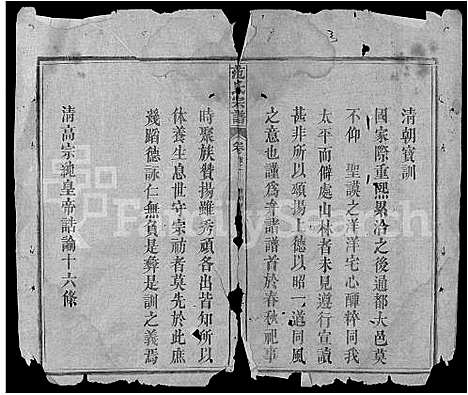 清朝寶訓
國家際重熙累洽之後通都大邑莫
不仰 聖謨之洋洋宅心醇粹同我
太平而僻處山林者未見遵行宣讀
甚非所以頌揚上德以昭一道同風
之意也謹為弁諸譜首於春秋祀事
范氏宗譜 卷
時聚族賛揚雖秀頑各出皆知所以
休養生息世守宗祊者莫先於此庶
幾蹈德詠仁無負是彝是訓之義焉
清高宗純皇帝誥諭十六條
FamilySearch